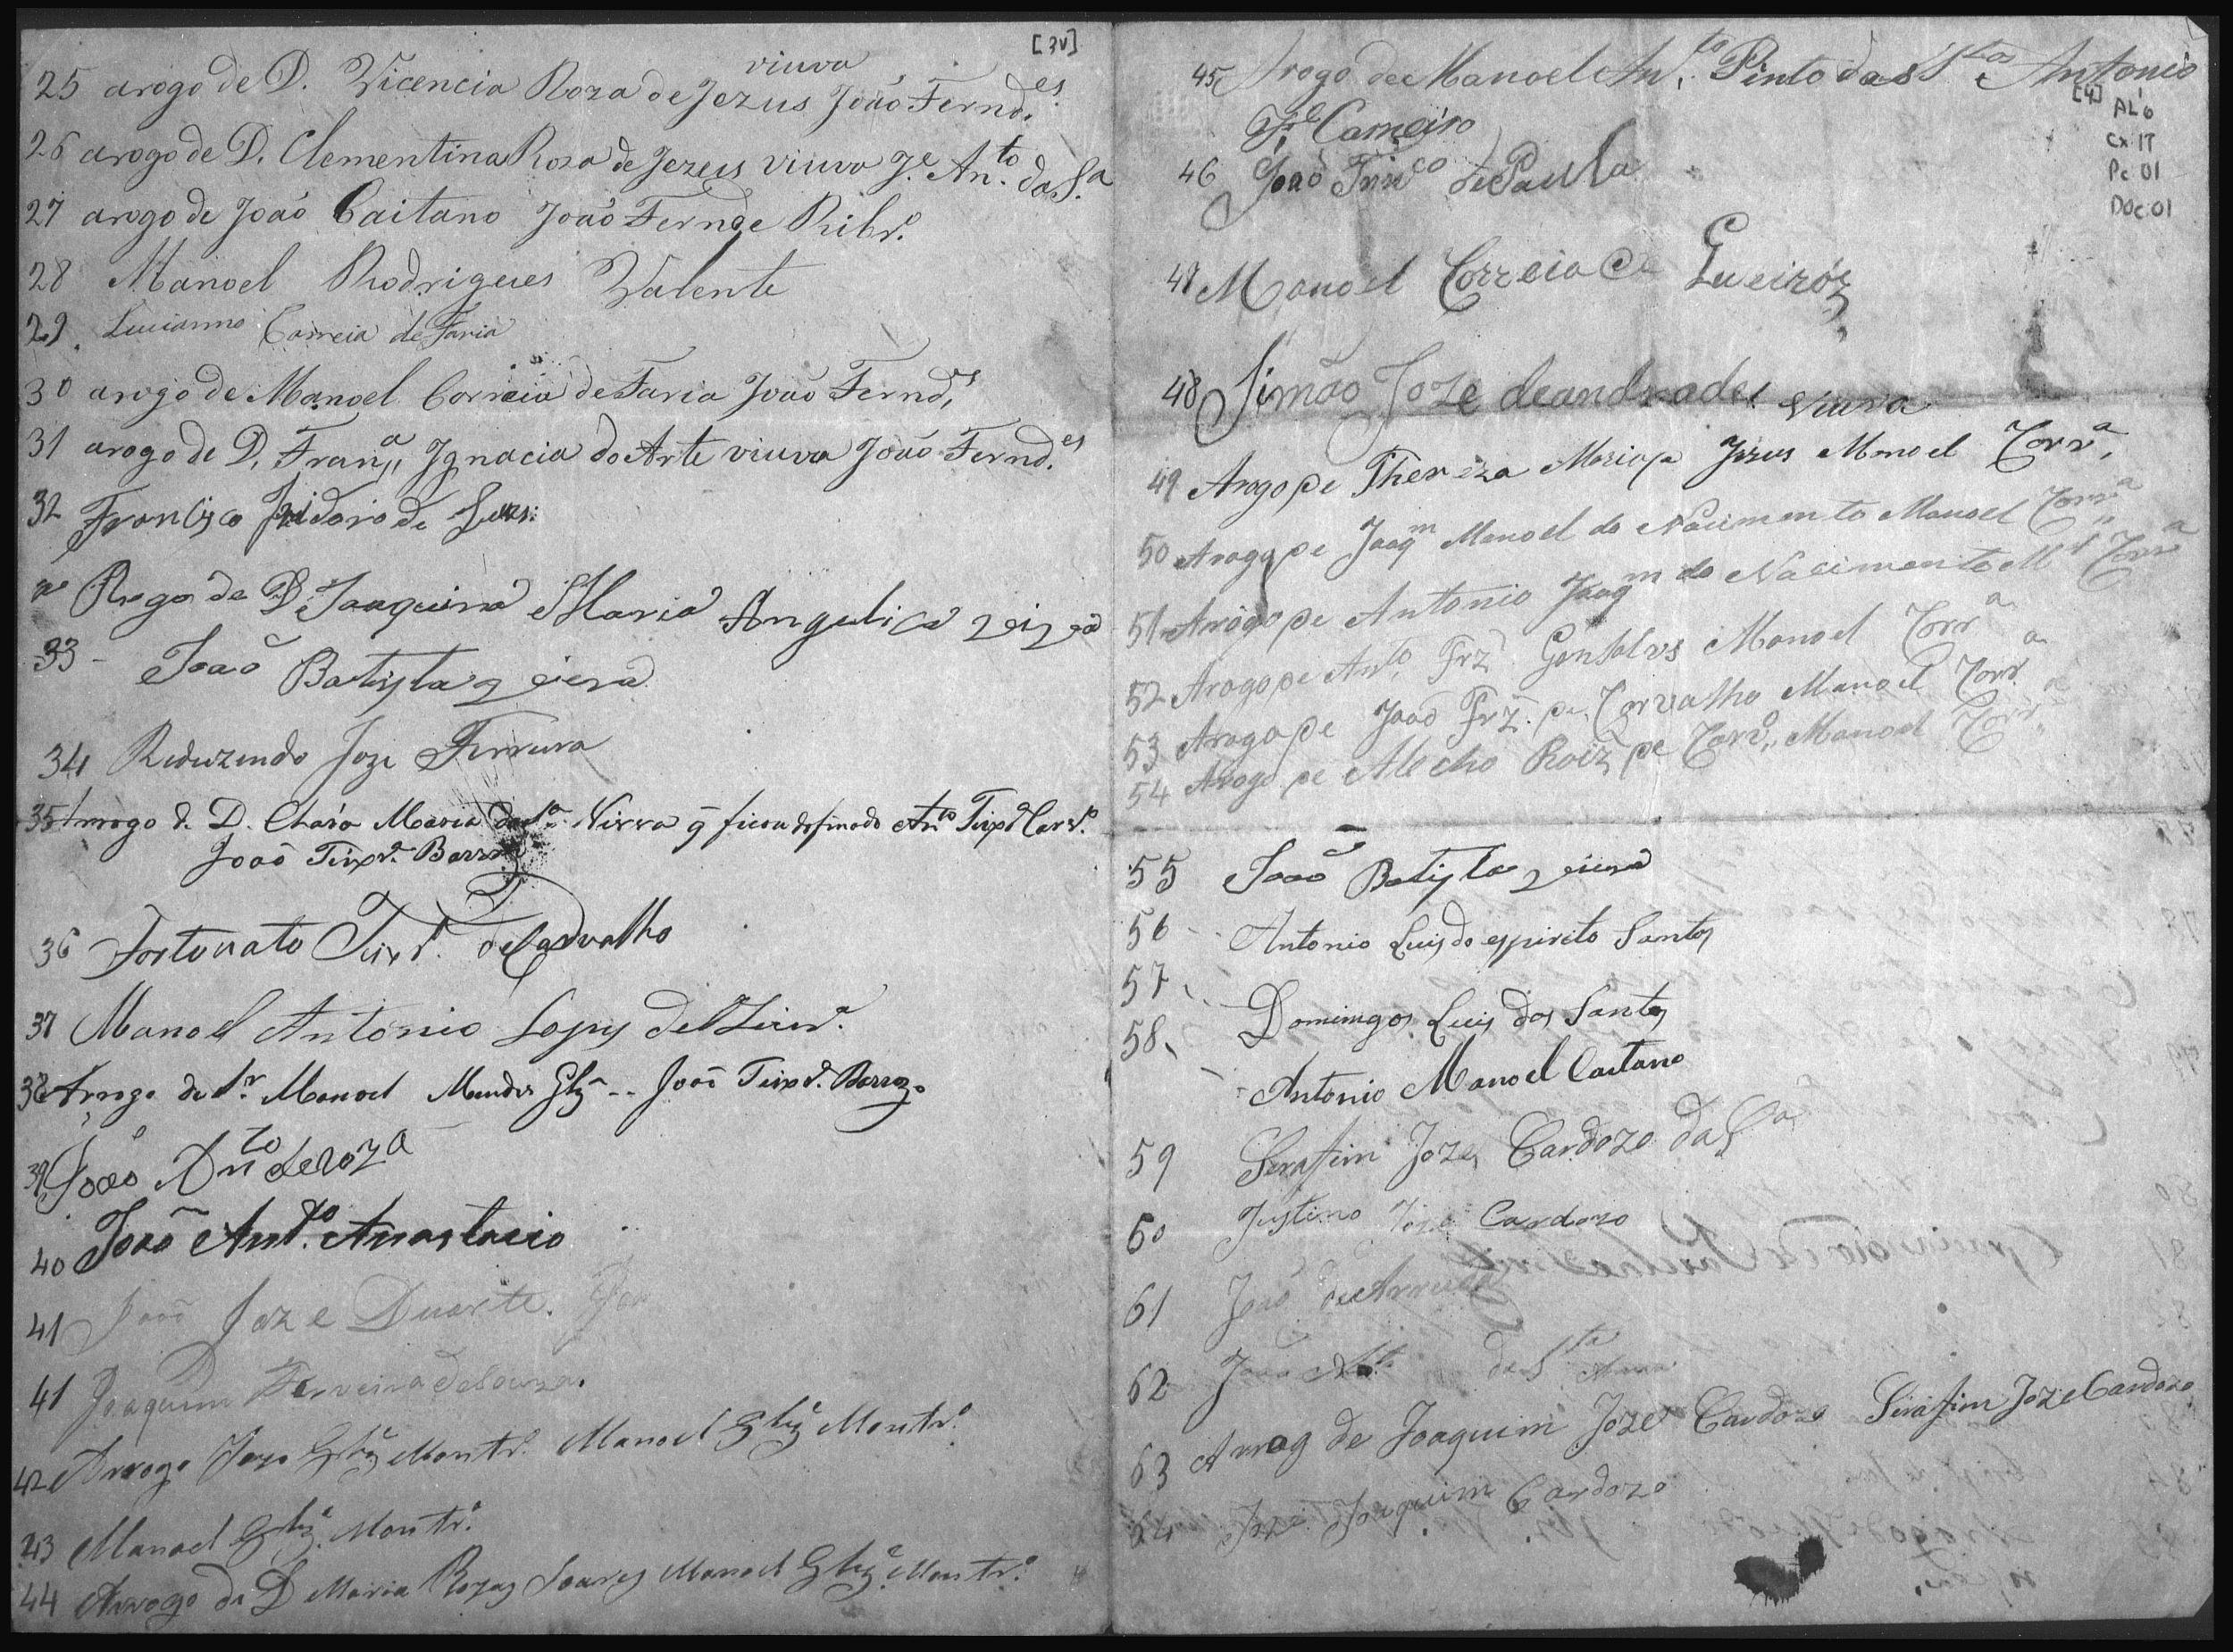 [3v]
viuva
25 arogo de D. Vicencia Roza de Jezus João Fernd.es
26 arogo de D. Clementina Roza de Jezus viuva J.e An.to da S.a
27 arogo de João Caitano João Fernde Ribr.o
28 Manoel Rodrigues Valente
29. Lucianno Correia de Faria
30 arogo de Manoel Correia de Faria João Fernd.es
31 arogo de D. Fran.a Ignacia do Arte viuva João Fernd.es
32 Francisco Izidorio de
a Rogo de D. Joaquina Maria Angelica
33 - João Batista
34 Reduzendo Joze Ferreira
35 Arrogo de D. Chára Maria da S.a q̃ ficou do finado An.to Teixr.a Carv.o
João Teixr.a Barrozo
36 Fortunato Teixr.a de Carvalho
37 Manoel Antonio Lopes de
38 Arrogo do Sr. Manoel Mendes Glz -- João Teixr.a Barrozo
39 João An.to de Roza
40 João Ant.o Anastacio
41 João Joze Duarte.
41 Joaquim Ferreira de Souza.
42 Arrogo Joze Glz Montr.o Manoel Glz Montr.o
43 Manoel Glz Montr.o
44 Arrogo de D Maria Rozas Soares Manoel Glz Montr.o
45 Arogo de Manoel An.to Pinto das S.tas Antonio
J.e Carneiro
[4]
AL6
Cx 17
Pc 01
Doc: 01
46 João Frn.co de Paula
47 Manoel Correia de Queiróz
48 Simão Joze de andrade
viuva
49 Arogo de Thereza Maria de Jezus Manoel Corr.a
50 Arogo de Joaq.m Manoel do Nacimento Manoel Corr.a
51 Arogo de Antonio Joaq.m do Nacimento M.l Corr.a
52 Arogo de An.to Frz Gonsalves Manoel Corr.a
53 Arogo de João Frz. de Carvalho Manoel Corr.a
54 Arogo de Alecho Roiz de Carv.o Manoel Corr.a
55 João Batista
56 - Antonio Luis do espirito Santos
57. Domingos Luis dos Santos
58. Antonio Manoel Caetano
59 Serafim Joze Cardozo da S.a
60 Justino Joze Cardozo
61 João de Arruda
62 João da S.ta Anna
63 Arrog de Joaquim Joze Cardozo Serafim Joze Cardozo
64 Joze Joaquim Cardozo